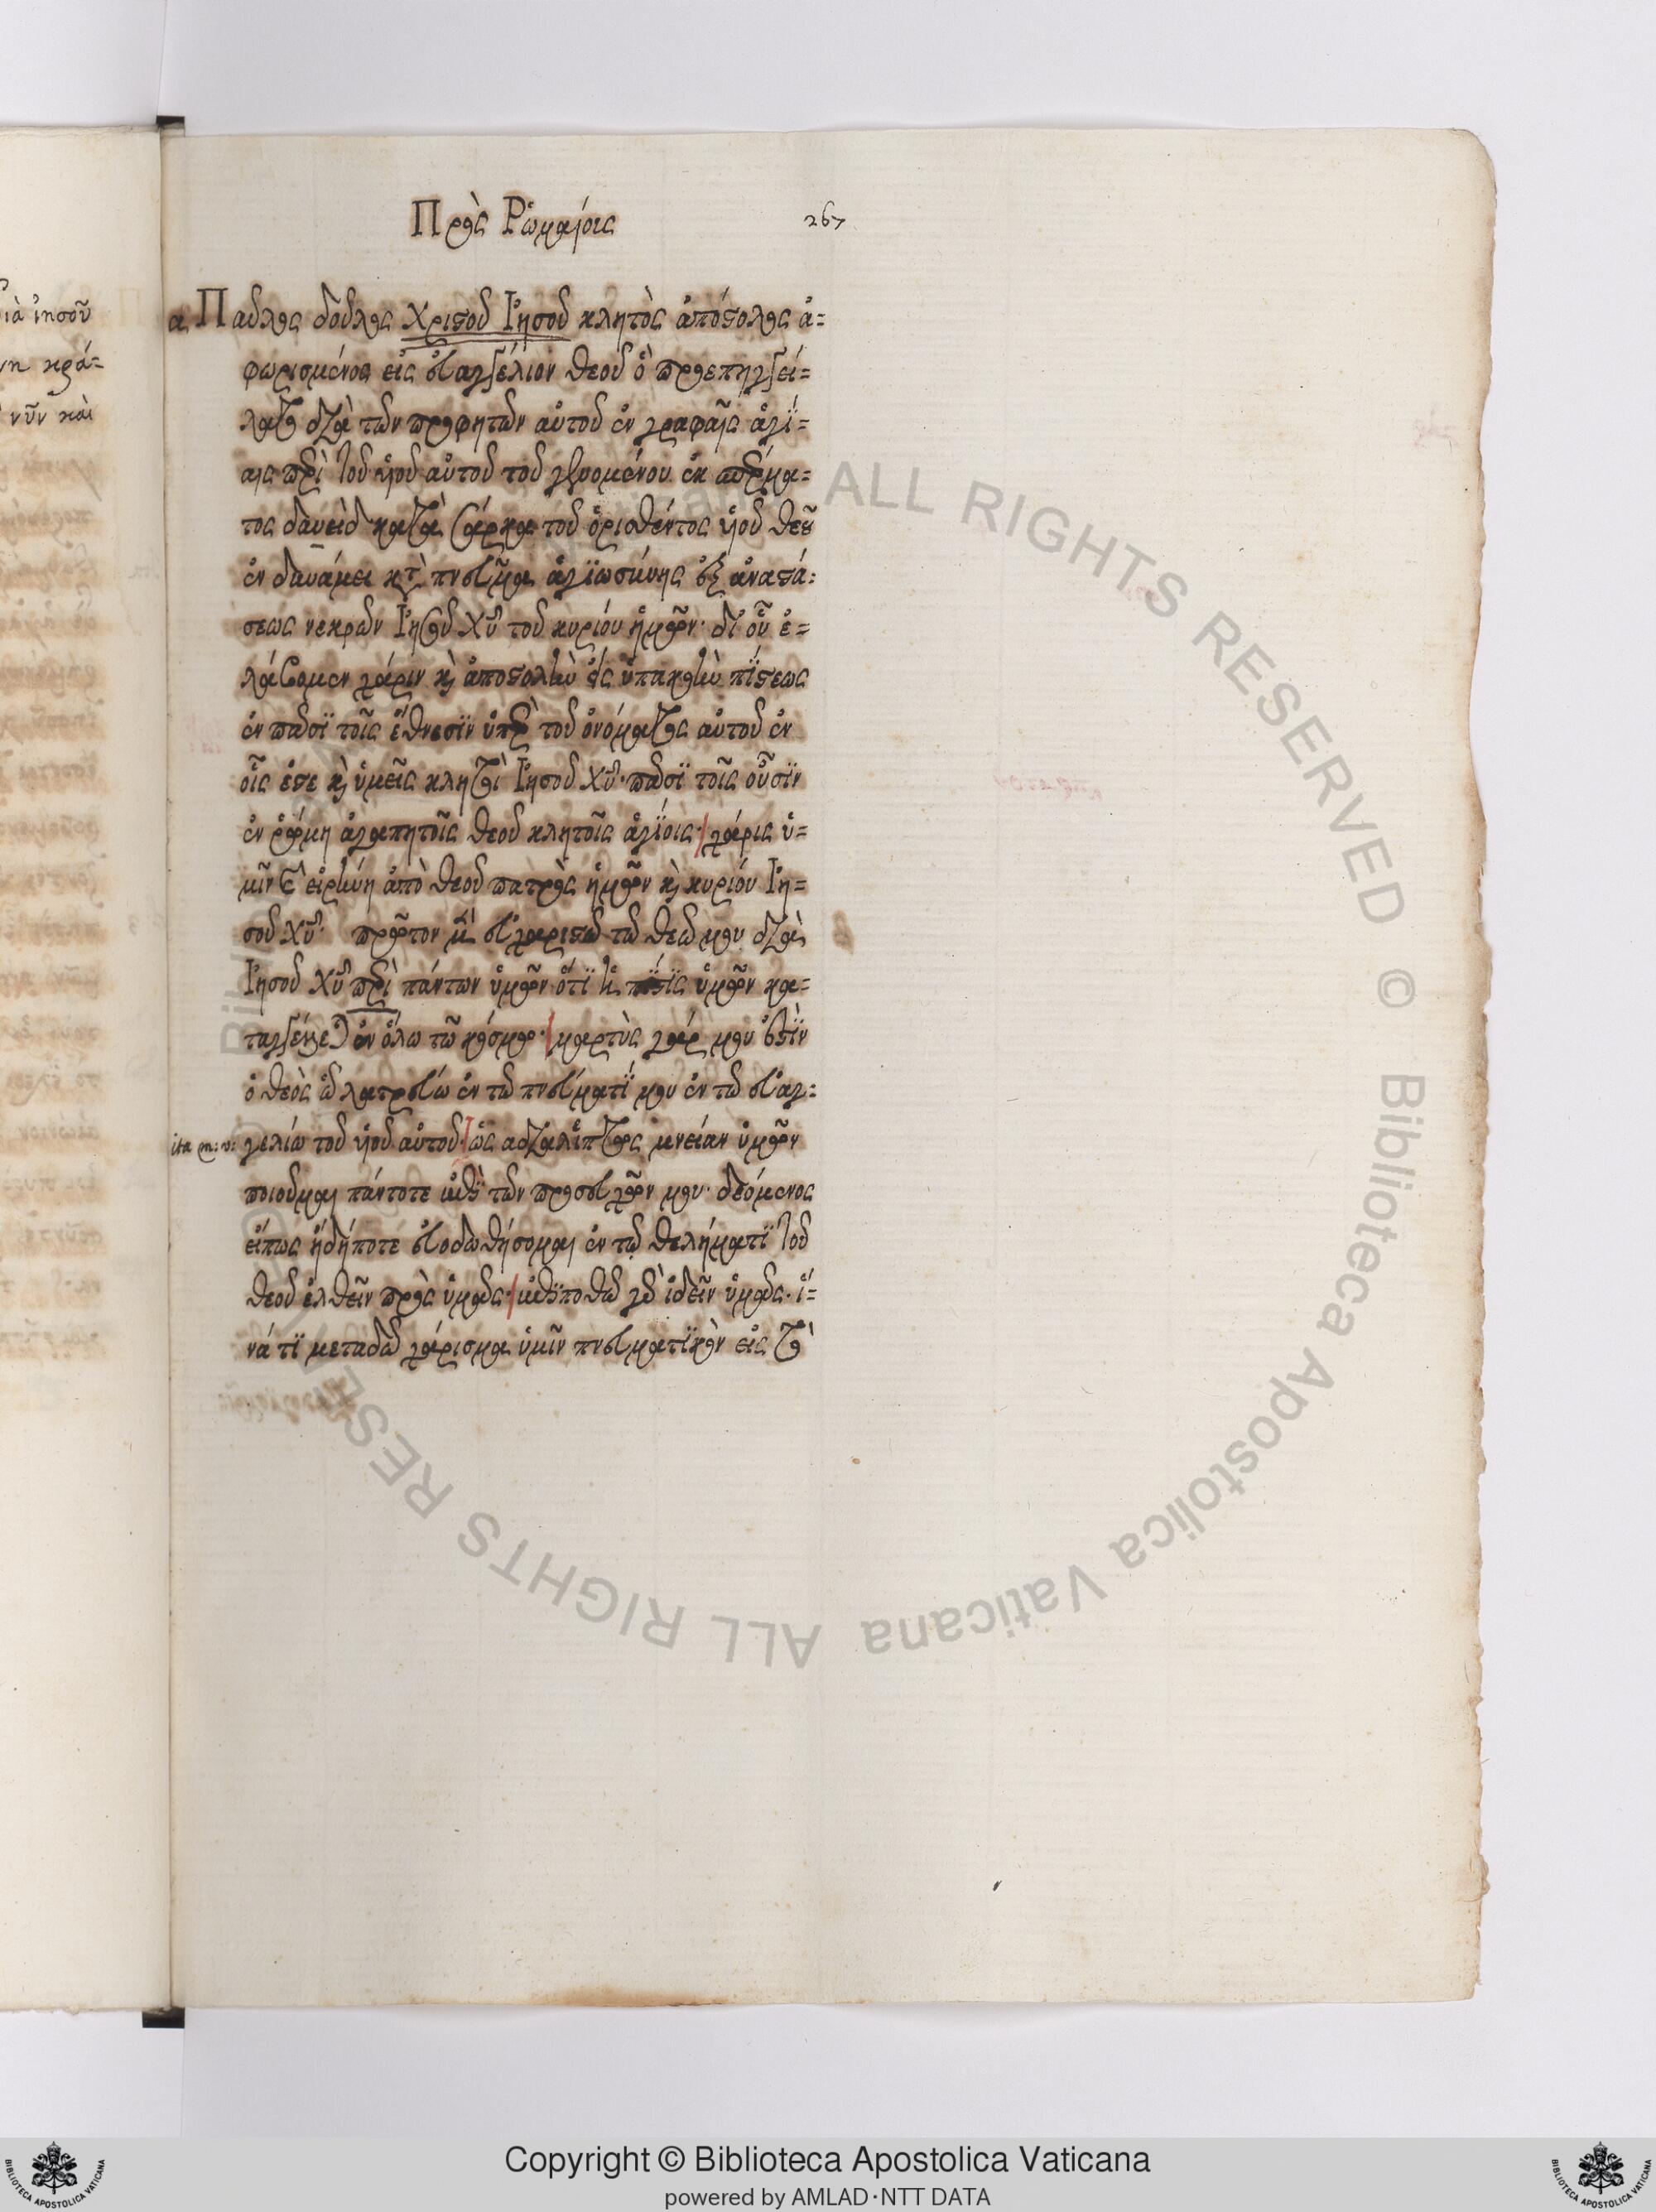 Πρὸς Ῥωμαίοις
267
ιὰ ἰησοῦ
νῦν καὶ
α Παῦλος δοῦλος Χριστοῦ Ἰησοῦ κλητὸς ἀπόστολος ἀ=
φωρισμένος εἰς εὐαγγέλιον θεοῦ ὃ προεπηγγεί=
λατο διὰ τῶν προφητῶν αὐτοῦ ἐν γραφαῖς ἁγί=
αις περὶ τοῦ υἱοῦ αὐτοῦ τοῦ γενομένου ἐκ σπέρμα=
τος δαυεὶδ κατὰ σάρκα τοῦ ὁρισθέντος υἱοῦ θεοῦ
ἐν δυνάμει κτ̀ πνεῦμα ἁγϊωσύνης ἐξ ἀναστά=
σεως νεκρῶν Ἰησοῦ Χῦ τοῦ κυρίου ἡμῶν· δι οὗ ἐ=
λάβομεν χάριν κὶ ἀποστολὴν εἰς ὑπακοὴν πίστεως
ἐν πᾶσϊ τοῖς ἔθνεσϊν ὑπὲρ τοῦ ὀνόματος αὐτοῦ ἐν
οἷς ἐστε κὶ ὑμεῖς κλητοὶ Ἰησοῦ Χῦ· πᾶσϊ τοῖς οὖσϊν
ἐν ῥώμη ἀγαπητοῖς θεοῦ κλητοῖς ἁγίοις· χάρις ὑ=
μῖν κὶ εἰρήνη ἀπὸ θεοῦ πατρὸς ἡμῶν κὶ κυρίου Ἰη=
σοῦ Χῦ· πρῶτον μὲν εὐχαριστῶ τῶ θεῶ μου διὰ
Ἰησοῦ Χῦ περὶ πάντων ὑμῶν ὅτϊ ἡ πίστϊς ὑμῶν κα=
ταγγέλλεται ἐν ὅλω τῶ κόσμω· μαρτὺς γάρ μου ἐστὶν
ὁ θεὸς ὧ λατρεύω ἐν τῶ πνεύματί μου ἐν τῶ εὐαγ=
ita m: v: γελίω τοῦ υἱοῦ αὐτοῦ· ὡς αδιαλείπτως μνείαν ὑμῶν
ποιοῦμαι πάντοτε ἐπὶ τῶν προσευχῶν μου· δεόμενος
εἴπως ἤδήποτε εὐοδωθήσομαι ἐν τῷ θελήματϊ τοῦ
θεοῦ ἐλθεῖν πρὸς ὑμᾶς· ἐπϊποθῶ γὰρ ἰδεῖν ὑμᾶς· ἵ=
νά τϊ μεταδῶ χάρισμα ὑμῖν πνευματϊκὸν εἰς τὸ
ALL RIGHTS RESERVED © Biblioteca Apostolica Vaticana ALL RIGHTS RESERVED
Copyright © Biblioteca Apostolica Vaticana
powered by AMLAD·NTT DATA
BIBLIOTECA APOSTOLICA VATICANA
BIBLIOTECA APOSTOLICA VATICANA